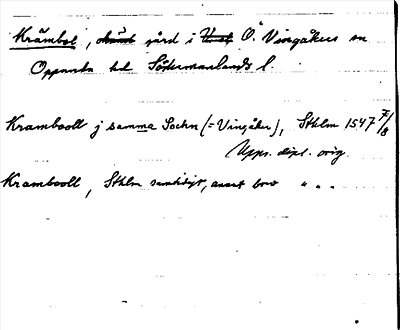 Kråmbol, gård i Ö. Vingåkers sn
Oppunda hd Södermanlands l.
Krambooll j samma Sochn (= Vingåker), Sthlm 1547 7/8
Upps. dipl. orig.
Krambooll, Sthlm samtidigt, annat brev " " "